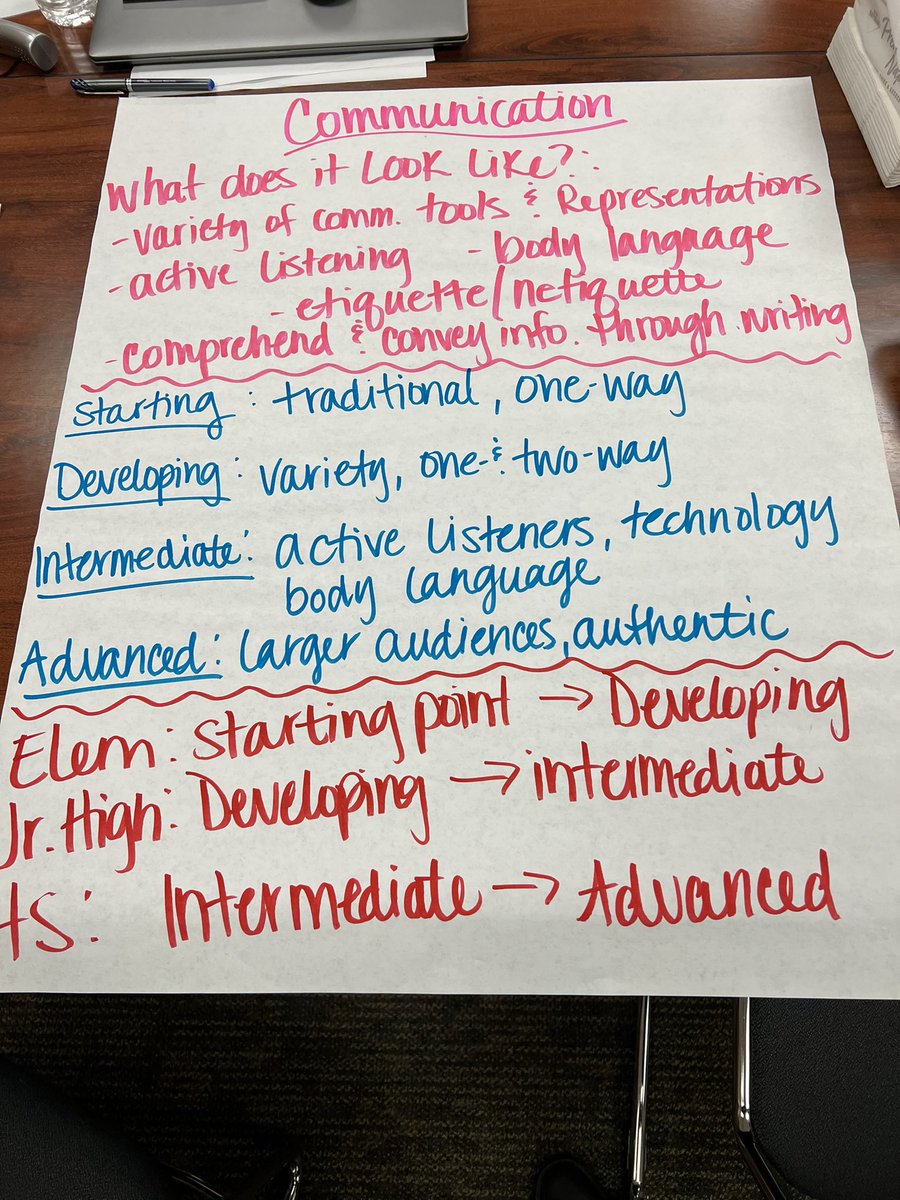 Communication
What does it Look Like?:
- variety of comm. tools & Representations
- active Listening - body language
- etiquette/netiquette
- comprehend & convey info. through writing
Starting: traditional, one-way
Developing: variety, one-&two-way
Intermediate: active Listeners, technology
body language
Advanced: Larger audiences, authentic
Elem: Starting point → Developing
Jr. High: Developing → intermediate
HS: Intermediate → Advanced